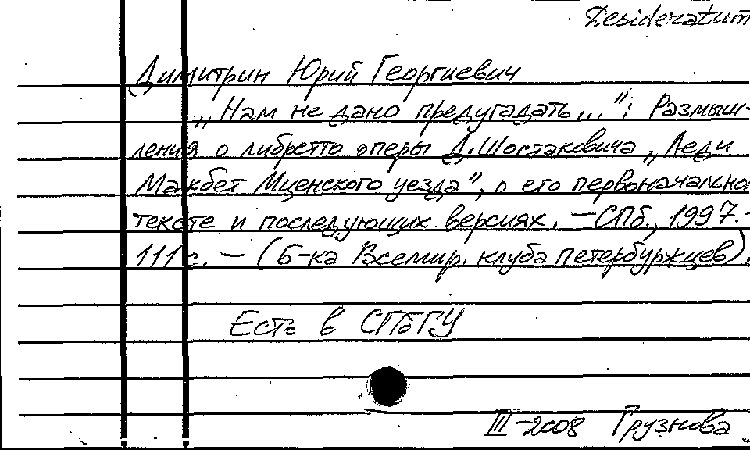 Desideratum
Димитрин Юрий Георгиевич
„Нам не дано предугадать...": Размыш-
ления о либретто оперы Д. Шостаковича „Леди
Макбет Мценского уезда", о его первоначально
тексте и последующих версиях. – СПб., 1997.-
111 с. – (Б-ка Всемир. клуба петербуржцев).
Есть в СПбГУ
III-2008 Грузнова